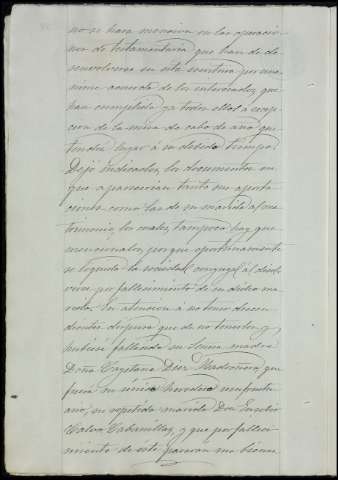 no se hace mencion en las operacio-
nes de testamentaria que han de de-
senvolverse en esta escritura por una-
nime acuerdo de los interesados, que
han cumplido ya todos ellos á excep-
cion de la misa de cabo de año que
tendrá lugar á su debido tiempo.
Dejó indicados los documentos en
que aparecerian tanto sus aporta-
ciones como las de su marido al ma-
trimonio, los cuales tampoco hay que
mencionarlos, porque oportunamente
se liquidó la sociedad conyugal al disol-
verse por fallecimiento de su dicho ma-
rido. En atencion á no tener descen-
dientes dispuso que de no tenerlos, y
hubiese fallecido su Señora madre
Doña Cayetana Diez Madroñero, que
fuese su único heredero usufructu-
ario, su repetido marido Don Eusebio
Calvo Cabanillas, y que por falleci-
miento de éste pasaran sus bienes